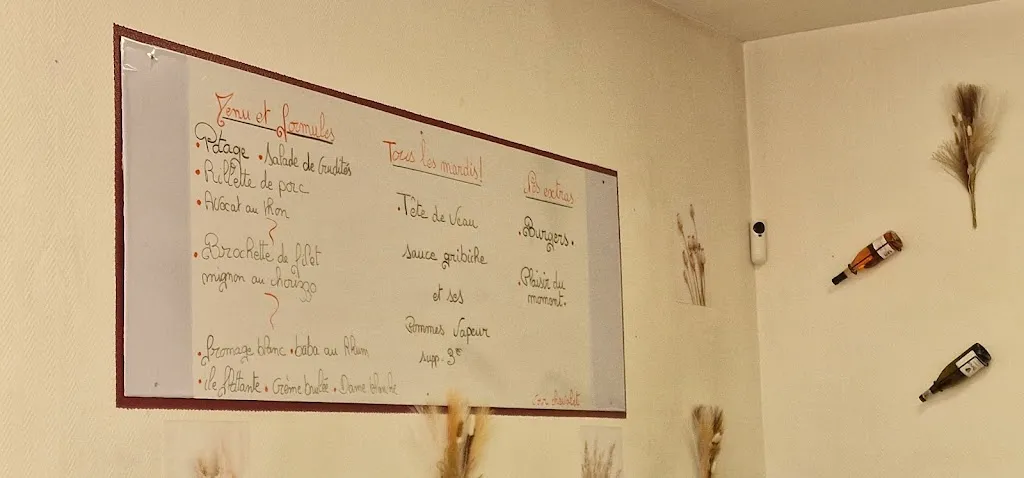 Menu et formules
• Potage • Salade de Crudités
• Rillette de porc
• Avocat au thon
• Brochette de filet
mignon au chorizo
• fromage blanc • baba au Rhum
• ile flottante • Crème brulée • Dame blanche
Tous les mardis!
• Tête de Veau
sauce gribiche
et ses
Pommes Vapeur
supp. 3€
Nos extras
• Burgers •
• Plaisir du
moment •